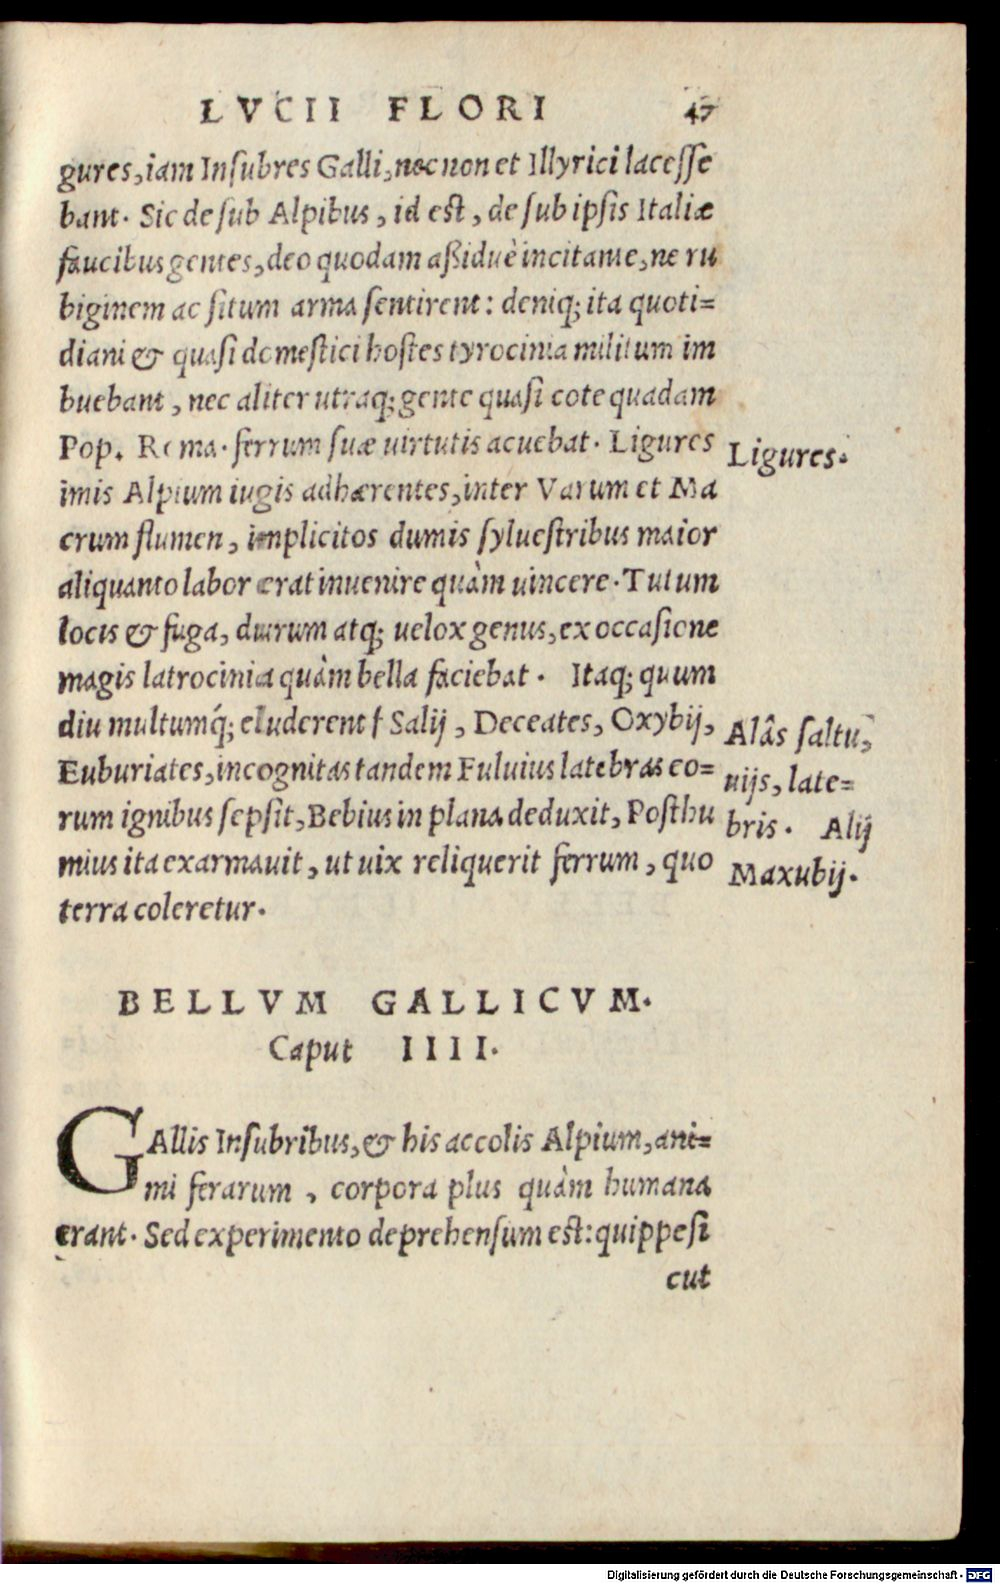 LVCII FLORI 47
gures, iam Insubres Galli, nec non et Illyrici lacesse
bant. Sic de sub Alpibus, id est, de sub ipsis Italiæ
faucibus gentes, deo quodam aßiduè incitante, ne ru
biginem ac situm arma sentirent: deniq; ita quoti=
diani & quasi domestici hostes tyrocinia militum im
buebant, nec aliter utraq; gente quasi cote quadam
Pop. Roma. ferrum suæ uirtutis acuebat. Ligures
imis Alpium iugis adhærentes, inter Varum et Ma
crum flumen, implicitos dumis syluestribus maior
aliquanto labor erat inuenire quàm uincere. Tutum
locis & fuga, durum atq; uelox genus, ex occasione
magis latrocinia quàm bella faciebat. Itaq; quum
diu multumq́; eluderent † Salij, Deceates, Oxybij,
Euburiates, incognitas tandem Fuluius latebras eo=
rum ignibus sepsit, Bebius in plana deduxit, Posthu
mius ita exarmauit, ut uix reliquerit ferrum, quo
terra coleretur.
Ligures.
Alâs saltu,
uijs, late=
bris. Alij
Maxubij.
BELLVM GALLICVM.
Caput IIII.
GAllis Insubribus, & his accolis Alpium, ani=
mi ferarum, corpora plus quàm humana
erant. Sed experimento deprehensum est: quippe si
cut
Digitalisierung gefördert durch die Deutsche Forschungsgemeinschaft - DFG